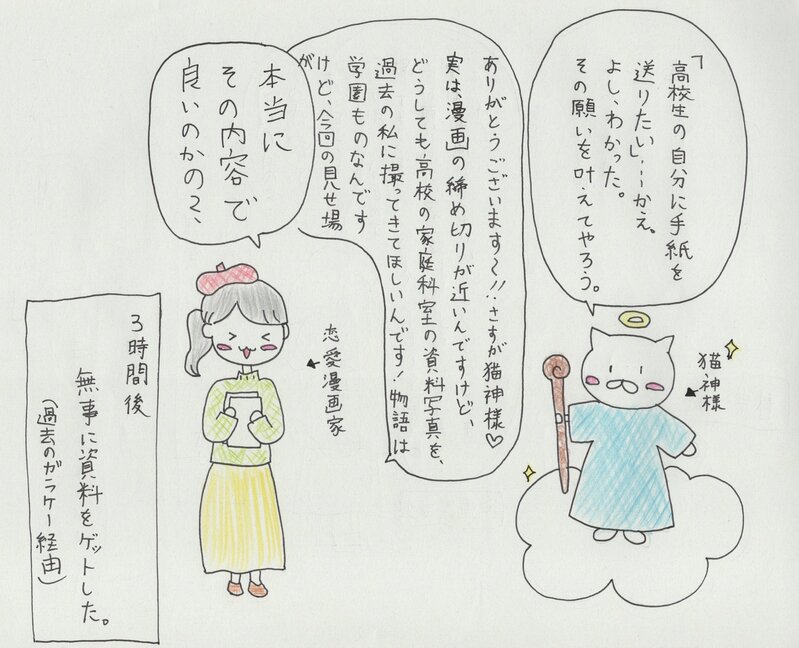 「高校生の自分に手紙を
送りたい」…かえ。
よし、わかった。
その願いを叶えてやろう。
猫神様
ありがとうございます〜!!さすが猫神様♡
実は、漫画の締め切りが近いんですけど、
どうしても、高校の家庭科室の資料写真を、
過去の私に撮ってきてほしいんです!物語は
学園ものなんです
けど、今回の見せ場
が
恋愛漫画家
本当に
その内容で
良いのかの?、
3時間後
無事に資料をゲットした。
(過去のガラケー経由)